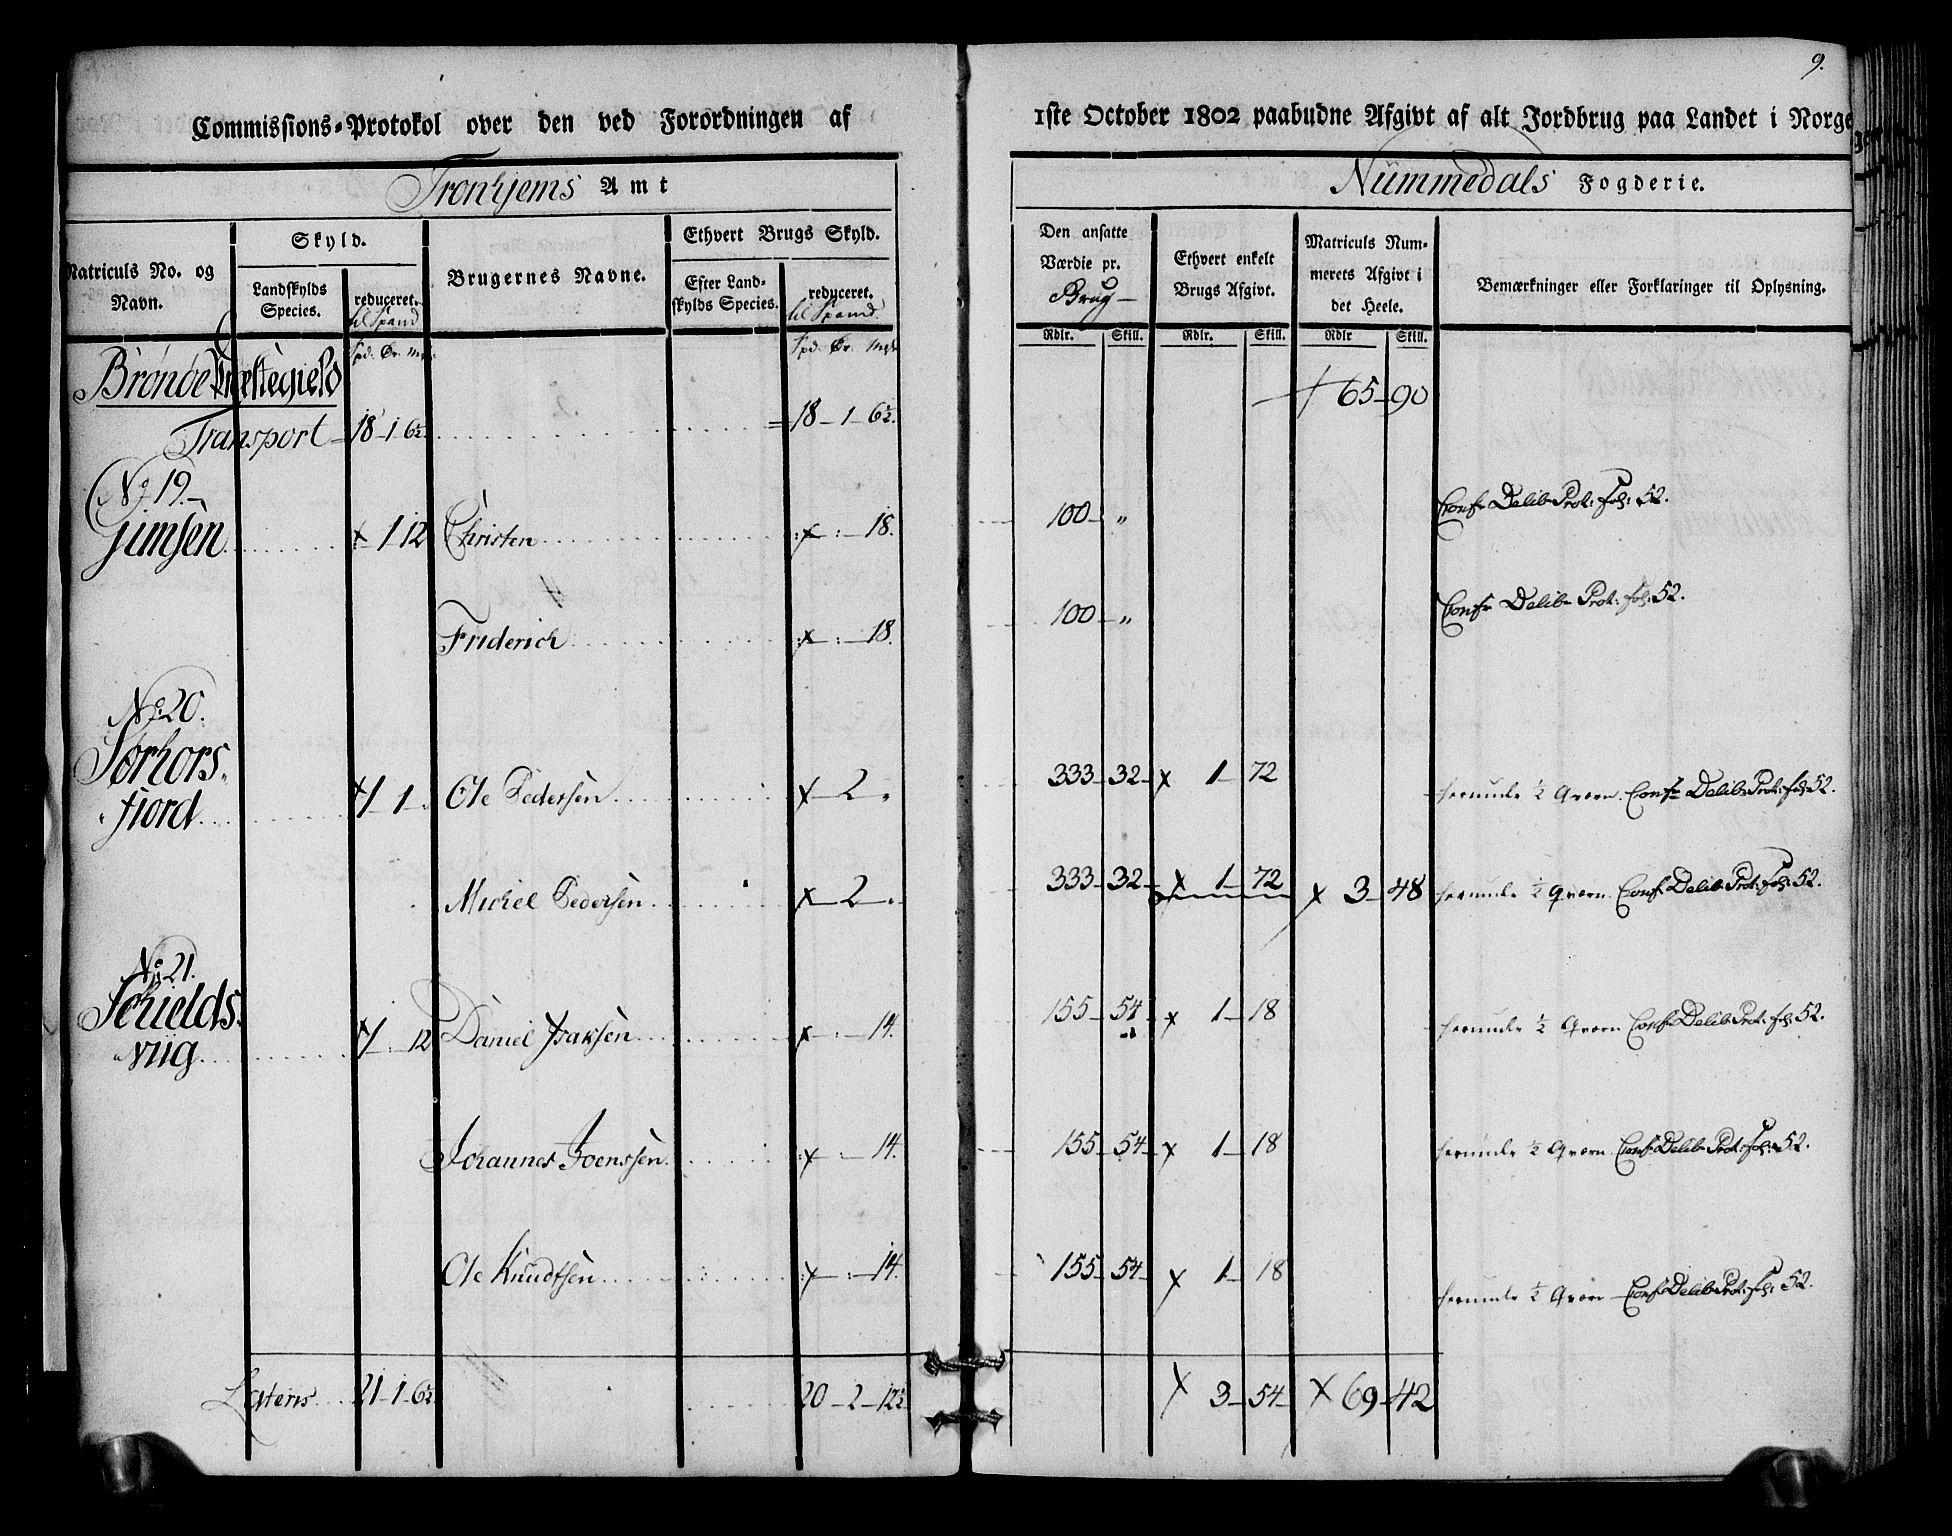 9.
Commissions-Protokol over den ved Forordningen af 1ste October 1802 paabudne Afgivt af alt Jordbrug paa Landet i Norge
Tronhjems Amt
Nummedals Fogderie.
Matriculs No. og Navn.
Skyld.
Landskylds Species.
reduceret. til Spand
Brugernes Navne.
Ethvert Brugs Skyld.
Efter Landskylds Species.
reduceret. til Spand.
Den ansatte Værdie pr. Brug
Ethvert enkelt Brugs Afgivt.
Matriculs Nummerets Afgivt i det Heele.
Bemærkninger eller Forklaringer til Oplysning.
Spd. Ør. Mrk.
Spd. Ør. Mrk
Rdlr. Skill. Rdlr. Skill. Rdlr Skill.
Brønöe Præstegield
65 90
Transport 18 1 6½. 18 1 6½.
No 19.
Gimsen 1 12 Christen 18. 100 „ Confr Delib Prot: fol: 52.
Friderich 18. 100 „ Confr Delib Prot: fol: 52.
No 20.
Sørhors-
fiord 1 1 Ole Pedersen 2 „ 333 32 1 72 herunde ½ Qvern. Confr Delib Prot: fol: 52.
Michel Pedersen 2 „ 333 32 1 72 3 48 herunde ½ Qvern. Confr Delib Prot: fol: 52.
No 21.
Schields-
viig 1 12 Daniel Isaksen 14. 155 54 1 18 herunde ½ Qvern Confr Delib Prot: fol: 52.
Johannes Joenssen 14. 155 54 1 18 herunde ½ Qvern. Confr Delib Prot: fol: 52.
Ole Knudtsen 14. 155 54 1 18 herunde ½ Qvern Confr Delib Prot: fol: 52.
Lateris 21 1 6½. 20 2 12½ 3 54 69 42